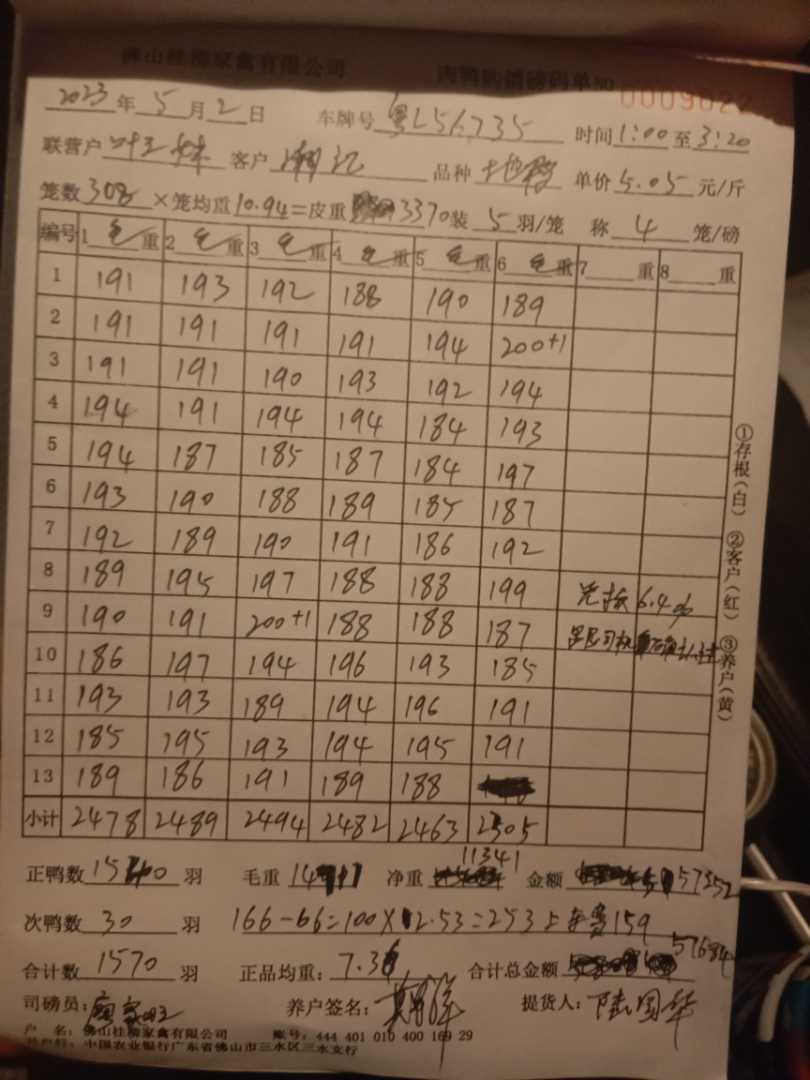 佛山桂柳家禽有限公司 肉鸭购销磅码单NO 0009022
2023年5月2日 车牌号 粤L56735 时间1:00至3:20
联营户 叶王妹 客户 潮记 品种 单价5.05元/斤
笼数308×笼均重10.94=皮重3370装5羽/笼 称4笼/磅
编号 1毛重 2毛重 3毛重 4毛重 5毛重 6毛重 7重 8重
1 191 193 192 188 190 189
2 191 191 191 191 194 200+1
3 191 191 190 193 192 194
4 194 191 194 194 184 193
5 194 187 185 187 184 197
6 193 190 188 189 185 187
7 192 189 190 191 186 192
8 189 195 197 188 188 199 6.4%
9 190 191 200+1 188 188 187
10 186 197 194 196 193 185
11 193 193 189 194 196 191
12 185 195 193 194 195 191
13 189 186 191 189 188
小计 2478 2489 2494 2482 2463 2305
①存根(白) ②客户(红) ③养户(黄)
正鸭数1540羽 毛重 净重11341 金额57252
次鸭数30羽 166-66=100×2.53=253上车费159
合计数1570羽 正品均重:7.36 合计总金额57684
司磅员: 养户签名: 提货人:陆国华
户 名:佛山桂柳家禽有限公司 账号:444 401 010 400 169 29
开户行:中国农业银行广东省佛山市三水区三水支行